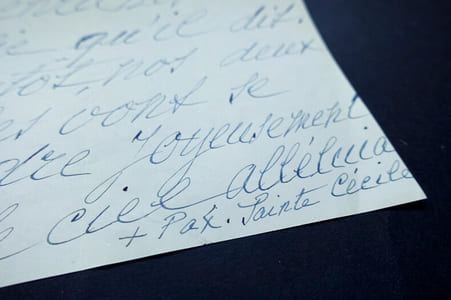 qu'il dit.
nos deux
vont se
dre joyeusement
le ciel alléluia
+ Pax. Sainte Cécile